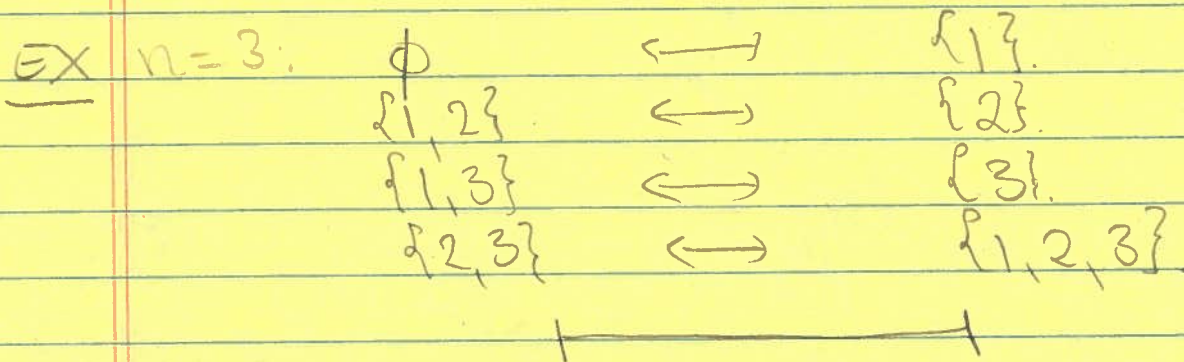 EX n=3: ϕ ↔ {1}.
{1,2} ↔ {2}.
{1,3} ↔ {3}.
{2,3} ↔ {1,2,3}.